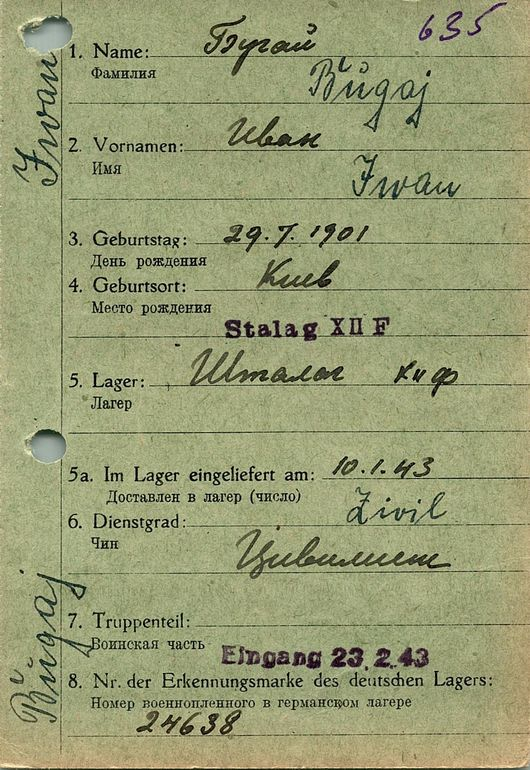 635
1. Name: Бугай
Фамилия
Bŭgaj
2. Vornamen: Иван
Имя
Iwan
3. Geburtstag: 29.7.1901
День рождения
4. Geburtsort: Киев
Место рождения
Stalag XII F
5. Lager: Шталаг
Лагер
5a. Im Lager eingeliefert am: 10.1.43
Доставлен в лагер (число)
Zivil
6. Dienstgrad:
Чин
Цивилист
7. Truppenteil:
Воинская часть
Eingang 23.2.43
8. Nr. der Erkennungsmarke des deutschen Lagers:
Номер военнопленного в германском лагере
24638
Bŭgaj Iwan